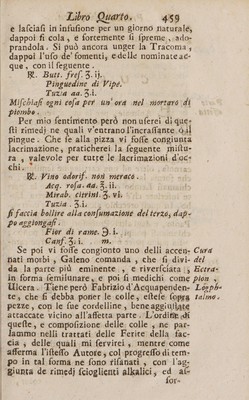 Libro Quarto. 459
e lasciasi in infusione per un giorno naturale,
dappoi si cola, e fortemente si spreme, ado-
prandola. Si può ancora unger la Tracoma,
dappoi l'uso de' fomenti, e delle nominate ac-
que, con il seguente.
℞. Butt. fres. ℥. ij.
Pinguedine di Vipe.
Tuzia aa. ℥. i.
Mischiasi ogni cosa per un' ora nel mortaro di
piombo.
Per mio sentimento però non userei di que-
sti rimedj ne quali v'entrano l'incrassante ò il
pingue. Che se alla pizza vi fosse congiunta
lacrimazione, praticherei la seguente mistu-
ra, valevole per tutte le lacrimazioni d'oc-
chi.
℞. Vino odorif. non meraco.
Acq. rosa. aa. ℥. ii.
Mirab. citrini. ℥. vi.
Tuzia. ℥. i.
si faccia bollire alla consumazione del terzo, dap-
po aggiongasi.
Fior di rame. ℈. i.
Canf. ℥. i. m.
Se poi vi fosse congionto uno delli accen-
nati morbi, Galeno comanda, che si divi-
da la parte più eminente, e riversciata
in forma semilunare, e poi si medichi come
Ulcera. Tiene però Fabrizio d'Acquapenden-
te, che si debba poter le colle, estese sopra
pezze, con le sue cordelline, bene aggiustate
attaccate vicino all'affetta parte. L'ordine di
queste, e composizione delle colle, ne par-
lammo nelli trattati delle Ferite della fac-
cia, delle quali mi servirei, mentre come
afferma l'istesso Autore, col progresso di tem-
po in tal forma ne sono risanati, con l'ag-
giunta de rimedj scioglienti alkalici, ed as-
sor-
Cura
del
Ectra-
pion,
Logph-
talmo.